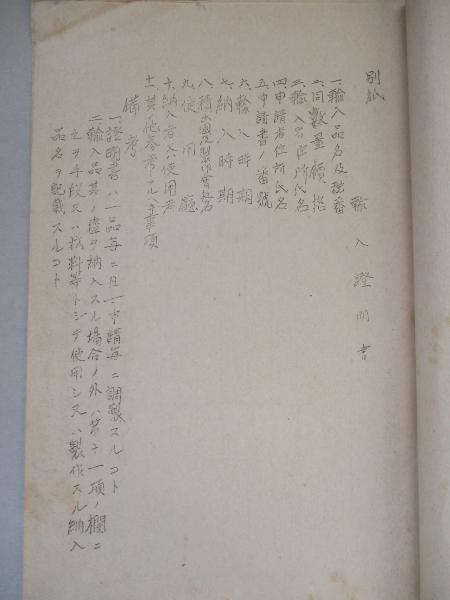 別紙
輸入證明書
一、輸入品名及税番
二、同數量、價格
三、輸入者住所氏名
四、申請者住所氏名
五、申請書ノ番號
六、輸入時期
七、納入時期
八、積出國及製作會社名
九、使用廳
十、納入者又ハ使用者
十一、其ノ他參考トナルベキ事項
備考
一、證明書ハ一品毎ニ且一申請毎ニ調製スルコト
二、輸入品其ノ儘ヲ納入スル場合ノ外ハ第十一項ノ欄ニ
之ヲ手段又ハ材料等トシテ使用シ又ハ製作スル納入
品名ヲ記載スルコト